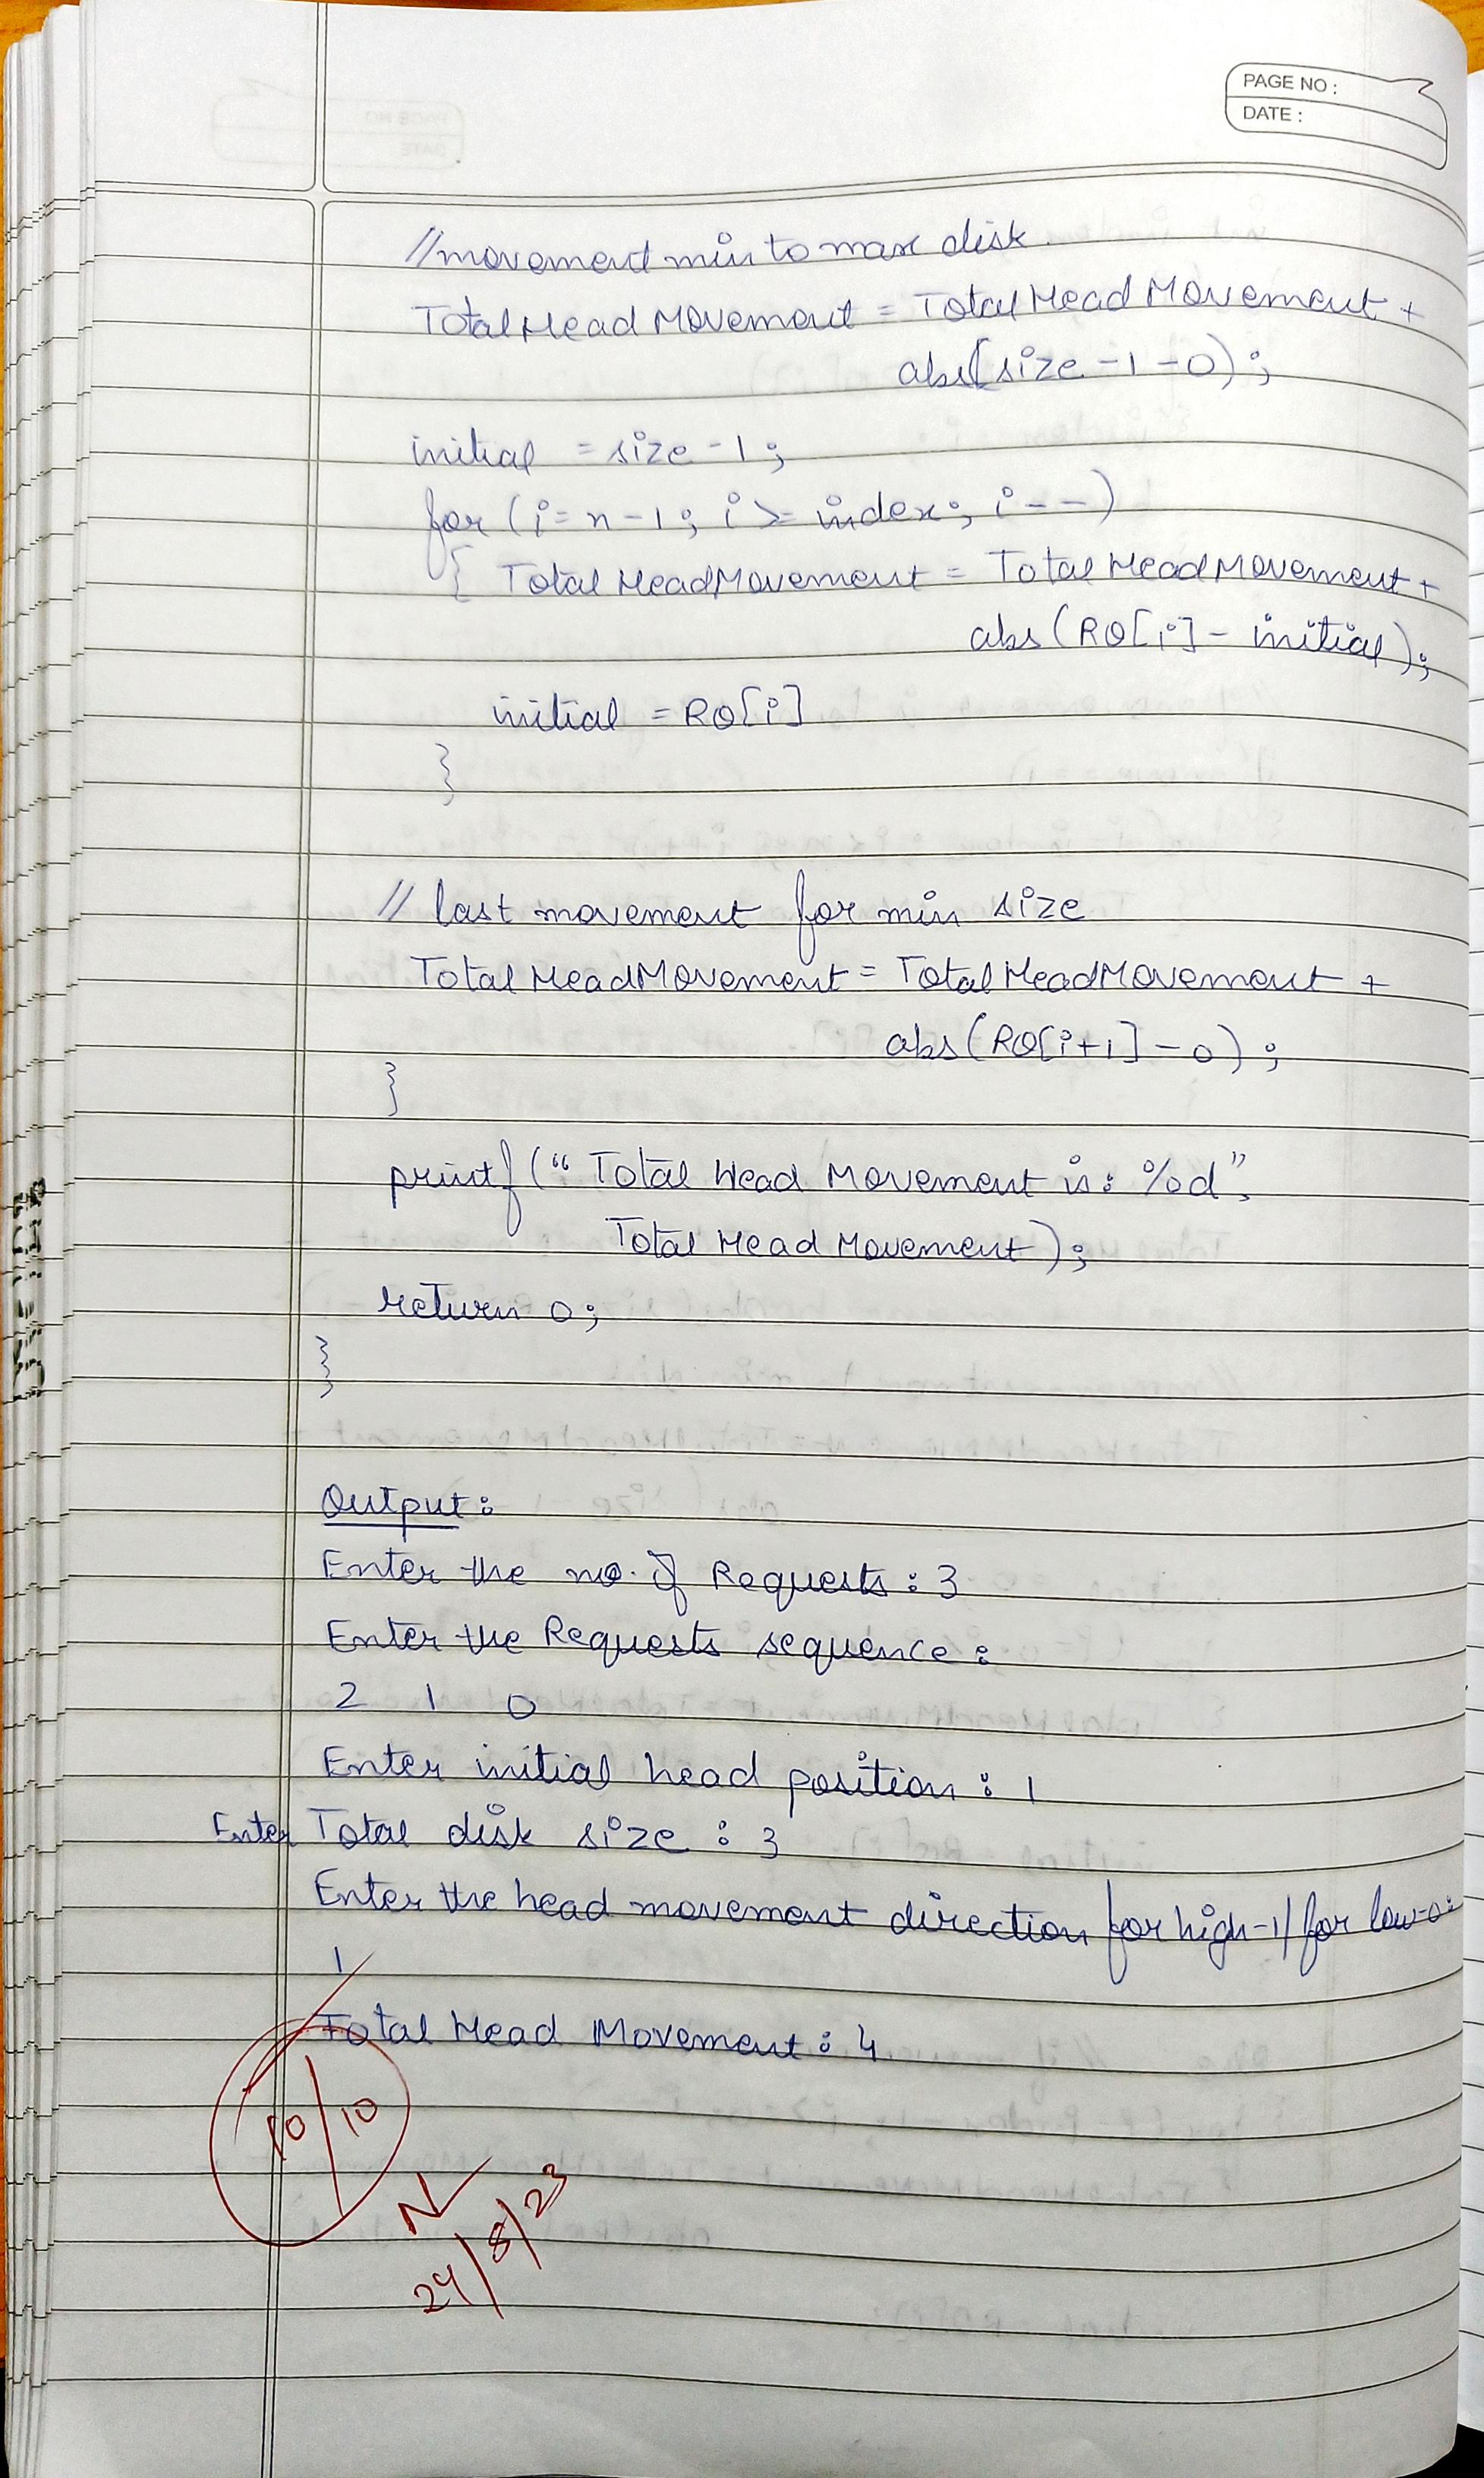 PAGE NO :
DATE :
//movement min to max disk
TotalHeadMovement = TotalHeadMovement +
abs(size-1-0);
initial = size-1;
for(i=n-1; i>=index; i--)
{ TotalHeadMovement = TotalHeadMovement +
abs(RQ[i] - initial);
initial = RQ[i]
}
// last movement for min size
TotalHeadMovement = TotalHeadMovement +
abs(RQ[i+1]-0);
}
printf("Total Head Movement is: %d",
TotalHeadMovement);
return 0;
}
Output:
Enter the no. of Requests : 3
Enter the Requests sequence :
2 1 0
Enter initial head position : 1
Enter Total disk size : 3
Enter the head movement direction for high-1/for low-0:
1
Total Head Movement : 4
10/10
N
24/8/23